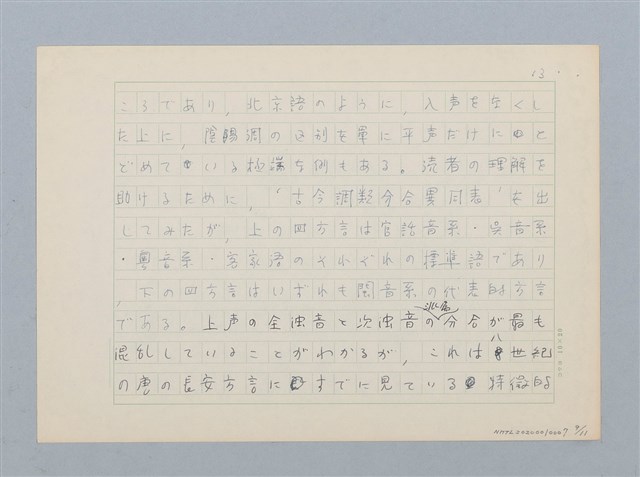 13
ころであり，北京語のように，入声をなくし
た上に，陰陽調の区別を單に平声だけにと
どめている極端な例もある。読者の理解を
助けるために，「古今調類分合異同表」を出
してみたが，上の四方言は官話音系・吳音系
・粵音系・客家語のそれぞれの標準語であり
，下の四方言はいずれも閩音系の代表的方言
である。上声の全浊音と次浊音の派属分合が最も
混乱していることがわかるが，これは八世紀
の唐の長安方言にすでに見ている特徴的
NMTL20200010007 9/11